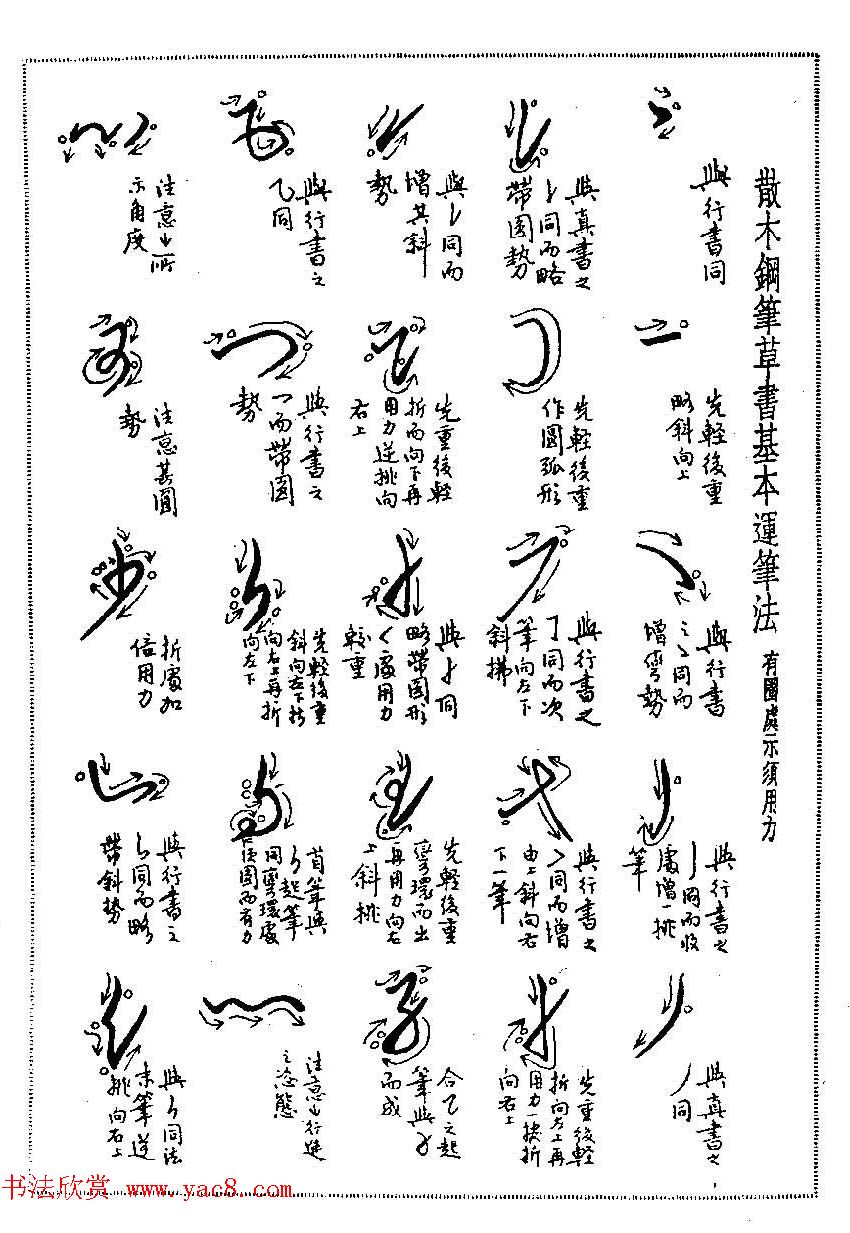 散木鋼筆草書基本運筆法 有圈處示須用力
與行書同
先輕後重
略斜向上
與行書
之丶同而
增彎勢
與行書之
亅同而收
處增一挑
筆
與真書之
丿同
與真書之
同而略
帶圓勢
先輕後重
作圓弧形
與行書之
㇆同而次
筆向左下
斜拂
與行書之
同而增
由上斜向右
下一筆
先重後輕
折向左上再
用力一挑折
向右上
與同而
增其斜
勢
先重後輕
折而向下再
用力逆挑向
右上
與同
略帶圓形
處用力
較重
先輕後重
彎環而出
再用力向右
上斜挑
合乙之起
筆與
而成
與行書之
乙同
與行書之
乛而帶圓
勢
先輕後重
斜向左下折
向右上再折
向左下
首筆與
起筆
同彎環處
須圓而有力
注意行進
之姿態
注意所
示角度
注意其圓
勢
折處加
倍用力
與行書之
同而略
帶斜勢
與同法
末筆逆
挑向右上
书法欣赏 www.yac8.com